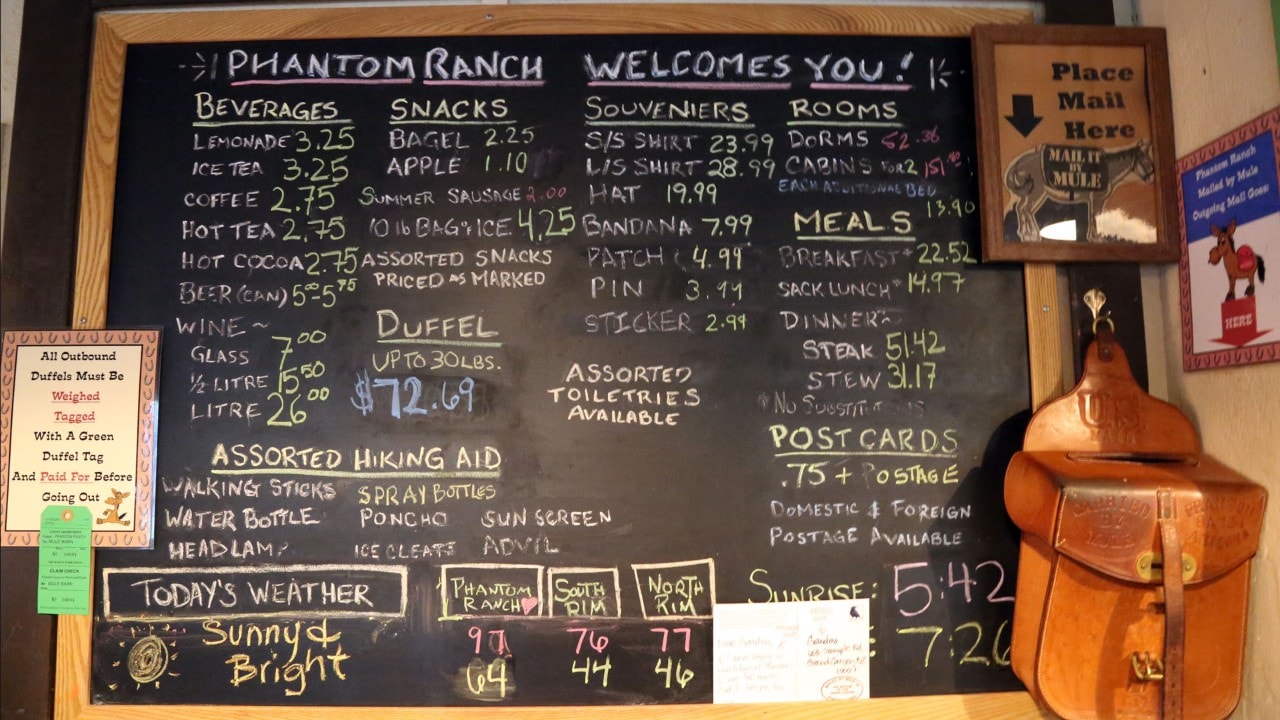 PHANTOM RANCH WELCOMES YOU!
BEVERAGES
LEMONADE 3.25
ICE TEA 3.25
COFFEE 2.75
HOT TEA 2.75
HOT COCOA 2.75
BEER (CAN) 5⁰⁰-5⁷⁵
WINE ~
GLASS 7⁰⁰
½ LITRE 15⁵⁰
LITRE 26⁰⁰
SNACKS
BAGEL 2.25
APPLE 1.10
SUMMER SAUSAGE 2.00
10 lb BAG of ICE 4.25
ASSORTED SNACKS
PRICED AS MARKED
DUFFEL
UP TO 30 LBS.
$72.69
SOUVENIERS
S/S SHIRT 23.99
L/S SHIRT 28.99
HAT 19.99
BANDANA 7.99
PATCH 4.99
PIN 3.99
STICKER 2.99
ASSORTED
TOILETRIES
AVAILABLE
ROOMS
DORMS 52.36
CABINS FOR 2
EACH ADDITIONAL BED
13.90
MEALS
BREAKFAST* 22.52
SACK LUNCH* 14.97
DINNER~
STEAK 51.42
STEW 31.17
POST CARDS
.75 + POSTAGE
DOMESTIC & FOREIGN
POSTAGE AVAILABLE
ASSORTED HIKING AID
WALKING STICKS SPRAY BOTTLES
WATER BOTTLE PONCHO SUN SCREEN
HEADLAMP ICE CLEATS ADVIL
TODAY'S WEATHER
Sunny &
Bright
PHANTOM
RANCH
97
64
SOUTH
RIM
76
44
NORTH
RIM
77
46
SUNRISE: 5:42
7:26
All Outbound
Duffels Must Be
Weighed
Tagged
With A Green
Duffel Tag
And Paid For Before
Going Out
CLAIM CHECK
Place
Mail
Here
MAIL IT
BY
MULE
Phantom Ranch
Mailed by Mule
Outgoing Mail Goes:
HERE
Grandma
U.S.